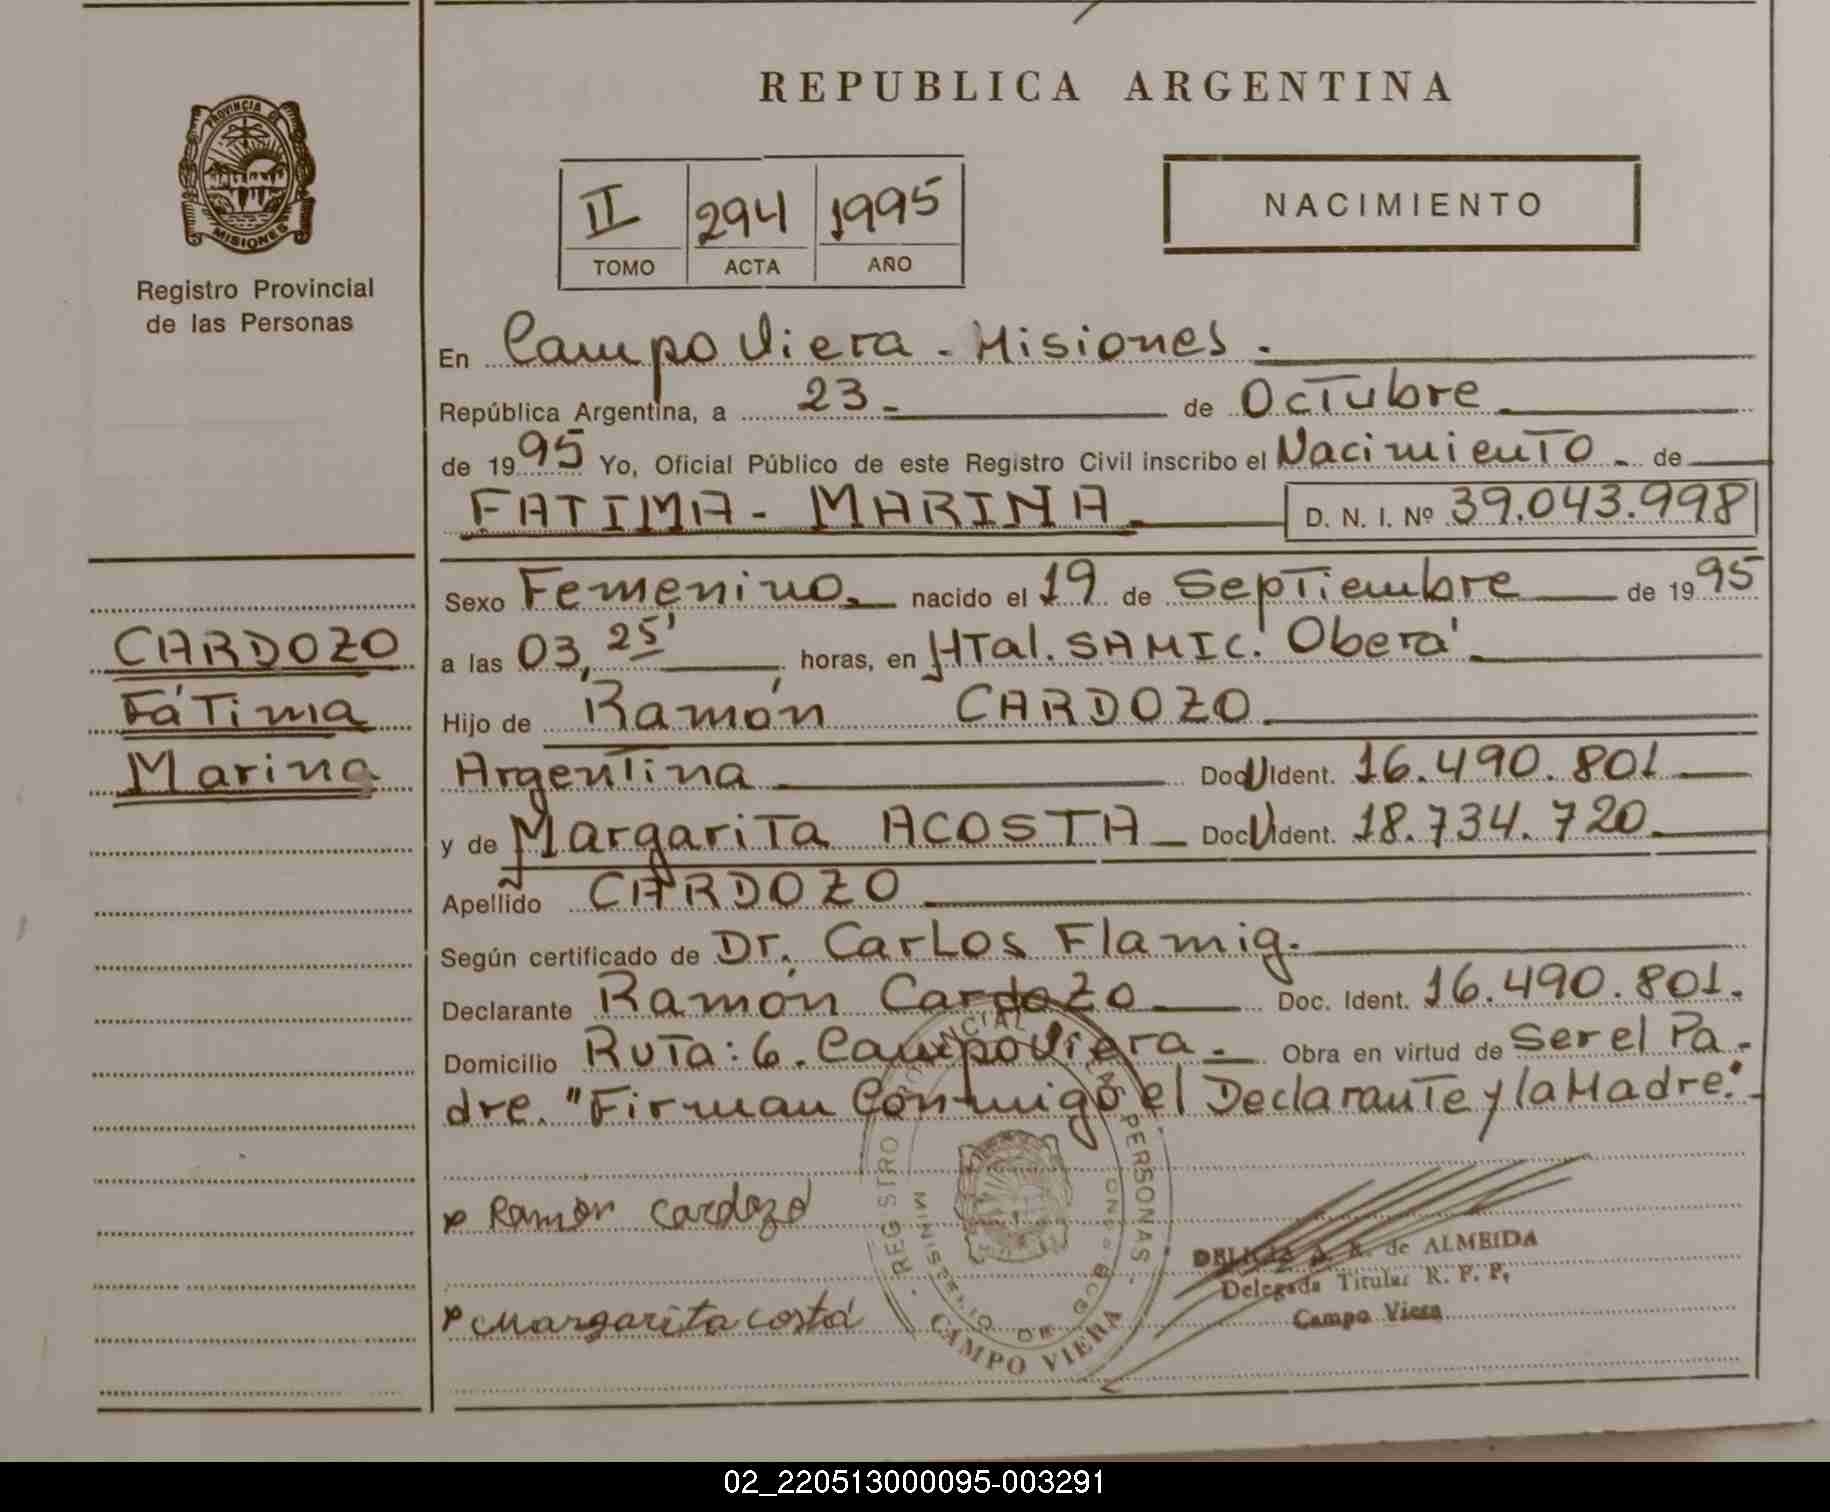 REPUBLICA ARGENTINA
PROVINCIA DE
MISIONES
Registro Provincial
de las Personas
II 294 1995
TOMO ACTA AÑO
NACIMIENTO
En Campo Viera - Misiones.
República Argentina, a 23 de Octubre
de 1995 Yo, Oficial Público de este Registro Civil inscribo el Nacimiento de
FATIMA - MARINA D. N. I. Nº 39.043.998
Sexo Femenino nacido el 19 de Septiembre de 1995
a las 03,25' horas, en HTal. SAMIC. Oberá
Hijo de Ramón CARDOZO
Argentina Doc U Ident. 16.490.801
y de Margarita ACOSTA Doc U Ident. 18.734.720
Apellido CARDOZO
Según certificado de Dr. Carlos Flamig.
Declarante Ramón Cardozo Doc. Ident. 16.490.801.
Domicilio Ruta: 6. Campo Viera. Obra en virtud de Ser el Pa-
dre. "Firman Conmigo el Declarante y la Madre."
CARDOZO
Fátima
Marina
x Ramon cardozo
x Margarita costa
REGISTRO PROVINCIAL DE LAS PERSONAS
MINISTERIO DE GOB
CAMPO VIERA
DELICIA A. R. de ALMEIDA
Delegada Titular R. P. P.
Campo Viera
02_220513000095-003291